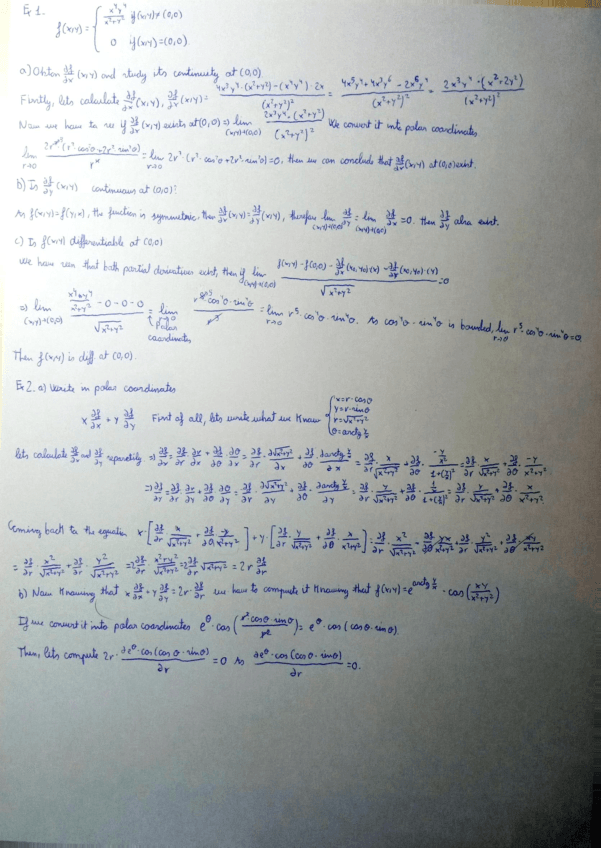 Ex 1.
f(x,y) = { x⁴y⁴/(x²+y²) if (x,y)≠(0,0)
0 if (x,y)=(0,0)
a) Obtain ∂f/∂x (x,y) and study its continuity at (0,0)
Firstly, lets calculate ∂f/∂x (x,y), ∂f/∂x (x,y) = (4x³y⁴·(x²+y²)-(x⁴y⁴)·2x)/(x²+y²)² = (4x⁵y⁴+4x³y⁶-2x⁵y⁴)/(x²+y²)² = 2x³y⁴·(x²+2y²)/(x²+y²)²
Now we have to see if ∂f/∂x (x,y) exists at (0,0) ⇒ lim (x,y)→(0,0) 2x³y⁴·(x²+2y²)/(x²+y²)² We convert it into polar coordinates
lim r→0 = lim r→0 = 0, then we can conclude that ∂f/∂x (x,y) at (0,0) exist.
b) Is ∂f/∂y (x,y) continuous at (0,0)?
As f(x,y)=f(y,x), the function is symmetric, then ∂f/∂x (x,y) = ∂f/∂y (x,y), therefore lim (x,y)→(0,0) ∂f/∂y = lim (x,y)→(0,0) ∂f/∂x = 0. Then ∂f/∂y also exist.
c) Is f(x,y) differentiable at (0,0)
We have seen that both partial derivatives exist, then if lim (x,y)→(0,0) (f(x,y)-f(0,0)-∂f/∂x (x₀,y₀)(x)-∂f/∂y (x₀,y₀)(y))/√(x²+y²) = 0
⇒ lim (x,y)→(0,0) (x⁴y⁴/(x²+y²) -0-0-0)/√(x²+y²) = lim r→0 = lim r→0 r⁵·cos⁴θ·sin⁴θ. As cos⁴θ·sin⁴θ is bounded, lim r→0 r⁵·cos⁴θ·sin⁴θ=0
Polar coordinates
Then f(x,y) is diff. at (0,0).
Ex 2. a) Write in polar coordinates
x ∂f/∂x + y ∂f/∂y First of all, lets write what we know { x=r·cosθ
y=r·sinθ
r=√(x²+y²)
θ=arctg y/x
lets calculate ∂f/∂x and ∂f/∂y separately ⇒ ∂f/∂x = ∂f/∂r · ∂r/∂x + ∂f/∂θ · ∂θ/∂x = ∂f/∂r · ∂√(x²+y²)/∂x + ∂f/∂θ · ∂arctg y/x /∂x = ∂f/∂r · x/√(x²+y²) + ∂f/∂θ · (-y/x²)/(1+(y/x)²) = ∂f/∂r · x/√(x²+y²) + ∂f/∂θ · -y/(x²+y²)
⇒ ∂f/∂y = ∂f/∂r · ∂r/∂y + ∂f/∂θ · ∂θ/∂y = ∂f/∂r · ∂√(x²+y²)/∂y + ∂f/∂θ · ∂arctg y/x /∂y = ∂f/∂r · y/√(x²+y²) + ∂f/∂θ · (1/x)/(1+(y/x)²) = ∂f/∂r · y/√(x²+y²) + ∂f/∂θ · x/(x²+y²)
Coming back to the equation x·[∂f/∂r · x/√(x²+y²) + ∂f/∂θ · -y/(x²+y²)] + y·[∂f/∂r · y/√(x²+y²) + ∂f/∂θ · x/(x²+y²)] = ∂f/∂r · x²/√(x²+y²) - ∂f/∂θ · xy/(x²+y²) + ∂f/∂r · y²/√(x²+y²) + ∂f/∂θ · xy/(x²+y²)
= ∂f/∂r · x²/√(x²+y²) + ∂f/∂r · y²/√(x²+y²) = 2∂f/∂r · (x²+y²)/√(x²+y²) = 2∂f/∂r √(x²+y²) = 2r ∂f/∂r
b) Now knowing that x ∂f/∂x + y ∂f/∂y = 2r·∂f/∂r we have to compute it knowing that f(x,y) = e^(arctg y/x) · cos(xy/(x²+y²))
If we convert it into polar coordinates e^θ·cos(r²cosθ·sinθ/r²) = e^θ·cos(cosθ·sinθ).
Then, lets compute 2r· ∂e^θ·cos(cosθ·sinθ)/∂r = 0 As ∂e^θ·cos(cosθ·sinθ)/∂r = 0.